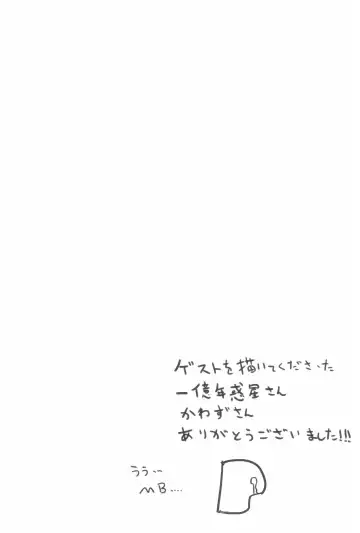 ゲストを描いてくださった
一億年惑星さん
かわずさん
ありがとうございました!!!
ううぃ
MB....